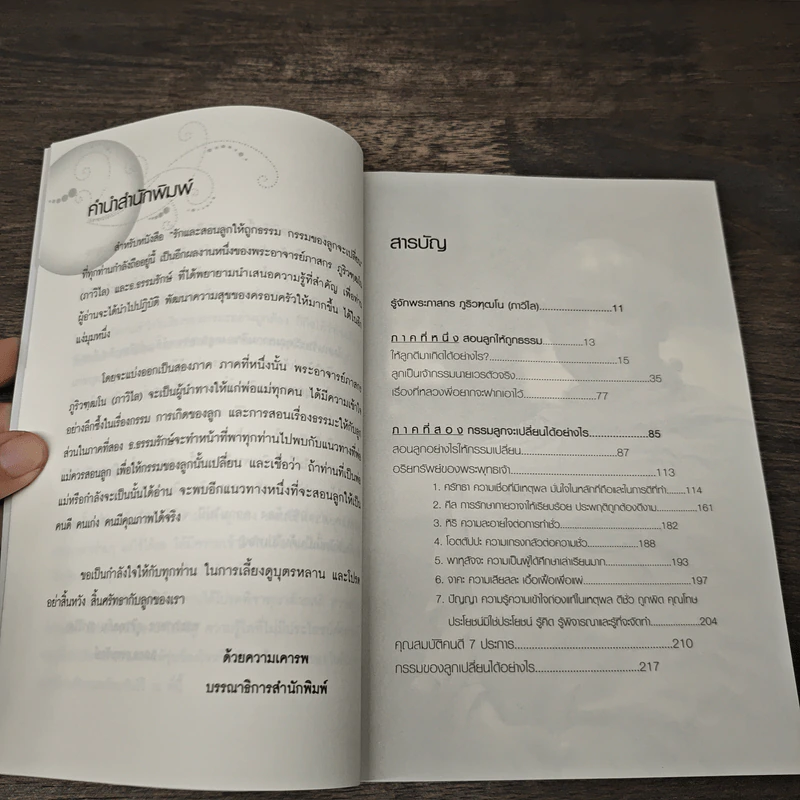 คำนำสำนักพิมพ์
สำหรับหนังสือ "รักและสอนลูกให้ถูกธรรม กรรมของลูกจะเปลี่ยน"
ที่ทุกท่านกำลังถืออยู่นี้ เป็นอีกผลงานหนึ่งของพระอาจารย์ภาสกร ภูริวฑฺฒโน
(ภาวิไล) และอ.ธรรมรักษ์ ที่ได้พยายามนำเสนอความรู้ที่สำคัญ เพื่อท่าน
ผู้อ่านจะได้นำไปปฏิบัติ พัฒนาความสุขของครอบครัวให้มากขึ้น ได้ในอีก
แง่มุมหนึ่ง
โดยจะแบ่งออกเป็นสองภาค ภาคที่หนึ่งนั้น พระอาจารย์ภาสกร
ภูริวฑฺฒโน (ภาวิไล) จะเป็นผู้นำทางให้แก่พ่อแม่ทุกคน ได้มีความเข้าใจ
อย่างลึกซึ้งในเรื่องกรรม การเกิดของลูก และการสอนเรื่องธรรมะให้กับลูก
ส่วนในภาคที่สอง อ.ธรรมรักษ์จะทำหน้าที่พาทุกท่านไปพบกับแนวทางที่พ่อ
แม่ควรสอนลูก เพื่อให้กรรมของลูกนั้นเปลี่ยน และเชื่อว่า ถ้าท่านที่เป็นพ่อ
แม่หรือกำลังจะเป็นนั้นได้อ่าน จะพบอีกแนวทางหนึ่งที่จะสอนลูกให้เป็น
คนดี คนเก่ง คนมีคุณภาพได้จริง
ขอเป็นกำลังใจให้กับทุกท่าน ในการเลี้ยงดูบุตรหลาน และโปรด
อย่าสิ้นหวัง สิ้นศรัทธากับลูกของเรา
ด้วยความเคารพ
บรรณาธิการสำนักพิมพ์
สารบัญ
รู้จักพระภาสกร ภูริวฑฺฒโน (ภาวิไล)........................11
ภาคที่หนึ่ง สอนลูกให้ถูกธรรม...........13
ให้ลูกดีมาเกิดได้อย่างไร?...................................15
ลูกเป็นเจ้ากรรมนายเวรตัวจริง....................................35
เรื่องที่หลวงพี่อยากจะฝากเอาไว้.....................77
ภาคที่สอง กรรมลูกจะเปลี่ยนได้อย่างไร................85
สอนลูกอย่างไรให้กรรมเปลี่ยน.........................87
อริยทรัพย์ของพระพุทธเจ้า.......................................113
1. ศรัทธา ความเชื่อที่มีเหตุผล มั่นใจในหลักที่ถือและในการดีที่ทำ.......114
2. ศีล การรักษากายวาจาให้เรียบร้อย ประพฤติถูกต้องดีงาม................161
3. หิริ ความละอายใจต่อการทำชั่ว..........................182
4. โอตตัปปะ ความเกรงกลัวต่อความชั่ว..................188
5. พาหุสัจจะ ความเป็นผู้ได้ศึกษาเล่าเรียนมาก...................193
6. จาคะ ความเสียสละ เอื้อเฟื้อเผื่อแผ่...........................197
7. ปัญญา ความรู้ความเข้าใจถ่องแท้ในเหตุผล ดีชั่ว ถูกผิด คุณโทษ
ประโยชน์มิใช่ประโยชน์ รู้คิด รู้พิจารณาและรู้ที่จะจัดทำ.............204
คุณสมบัติคนดี 7 ประการ.......................................210
กรรมของลูกเปลี่ยนได้อย่างไร..........................217